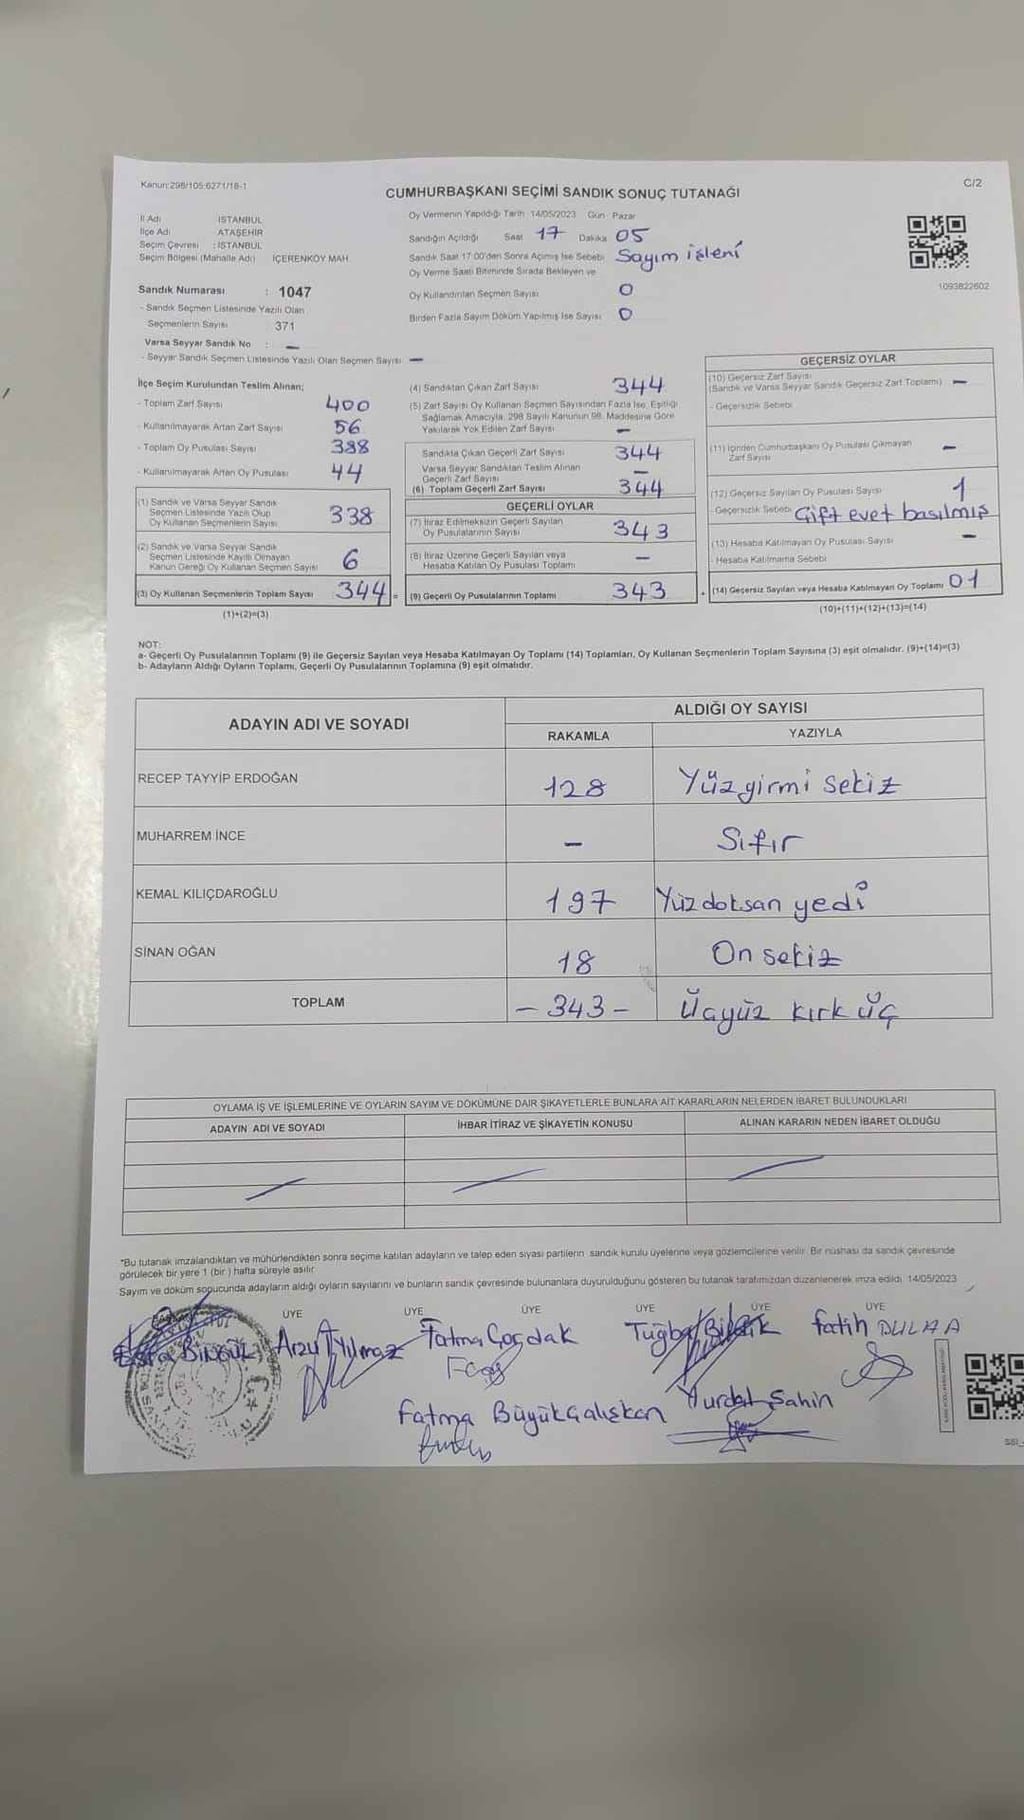 Kanun:298/105:6271/18-1
C/2
CUMHURBAŞKANI SEÇİMİ SANDIK SONUÇ TUTANAĞI
İl Adı : İSTANBUL
İlçe Adı : ATAŞEHİR
Seçim Çevresi : İSTANBUL
Seçim Bölgesi (Mahalle Adı) İÇERENKÖY MAH.
Sandık Numarası : 1047
- Sandık Seçmen Listesinde Yazılı Olan
Seçmenlerin Sayısı 371
Varsa Seyyar Sandık No : —
- Seyyar Sandık Seçmen Listesinde Yazılı Olan Seçmen Sayısı —
Oy Vermenin Yapıldığı Tarih 14/05/2023 Gün Pazar
Sandığın Açıldığı Saat 17 Dakika 05
Sandık Saat 17:00'den Sonra Açılmış İse Sebebi Sayım işleni
Oy Verme Saati Bitiminde Sırada Bekleyen ve
Oy Kullandırılan Seçmen Sayısı 0
Birden Fazla Sayım Döküm Yapılmış İse Sayısı 0
1093822602
İlçe Seçim Kurulundan Teslim Alınan;
- Toplam Zarf Sayısı 400
- Kullanılmayarak Artan Zarf Sayısı 56
- Toplam Oy Pusulası Sayısı 388
- Kullanılmayarak Artan Oy Pusulası 44
(1) Sandık ve Varsa Seyyar Sandık
Seçmen Listesinde Yazılı Olup
Oy Kullanan Seçmenlerin Sayısı 338
(2) Sandık ve Varsa Seyyar Sandık
Seçmen Listesinde Kayıtlı Olmayan
Kanun Gereği Oy Kullanan Seçmen Sayısı 6
(3) Oy Kullanan Seçmenlerin Toplam Sayısı 344 =
(1)+(2)=(3)
(4) Sandıktan Çıkan Zarf Sayısı 344
(5) Zarf Sayısı Oy Kullanan Seçmen Sayısından Fazla İse, Eşitliği
Sağlamak Amacıyla, 298 Sayılı Kanunun 98. Maddesine Göre
Yakılarak Yok Edilen Zarf Sayısı —
Sandıkta Çıkan Geçerli Zarf Sayısı 344
Varsa Seyyar Sandıktan Teslim Alınan
Geçerli Zarf Sayısı —
(6) Toplam Geçerli Zarf Sayısı 344
GEÇERLİ OYLAR
(7) İtiraz Edilmeksizin Geçerli Sayılan
Oy Pusulalarının Sayısı 343
(8) İtiraz Üzerine Geçerli Sayılan veya
Hesaba Katılan Oy Pusulası Toplamı —
(9) Geçerli Oy Pusulalarının Toplamı 343
GEÇERSİZ OYLAR
(10) Geçersiz Zarf Sayısı
(Sandık ve Varsa Seyyar Sandık Geçersiz Zarf Toplamı) —
- Geçersizlik Sebebi
(11) İçinden Cumhurbaşkanı Oy Pusulası Çıkmayan
Zarf Sayısı —
(12) Geçersiz Sayılan Oy Pusulası Sayısı 1
- Geçersizlik Sebebi Çift evet basılmış
(13) Hesaba Katılmayan Oy Pusulası Sayısı —
- Hesaba Katılmama Sebebi
(14) Geçersiz Sayılan veya Hesaba Katılmayan Oy Toplamı 01
(10)+(11)+(12)+(13)=(14)
NOT:
a- Geçerli Oy Pusulalarının Toplamı (9) ile Geçersiz Sayılan veya Hesaba Katılmayan Oy Toplamı (14) Toplamları, Oy Kullanan Seçmenlerin Toplam Sayısına (3) eşit olmalıdır. (9)+(14)=(3)
b- Adayların Aldığı Oyların Toplamı, Geçerli Oy Pusulalarının Toplamına (9) eşit olmalıdır.
ADAYIN ADI VE SOYADI
ALDIĞI OY SAYISI
RAKAMLA YAZIYLA
RECEP TAYYİP ERDOĞAN 128 Yüzyirmi sekiz
MUHARREM İNCE — Sıfır
KEMAL KILIÇDAROĞLU 197 Yüzdoksan yedi
SİNAN OĞAN 18 On sekiz
TOPLAM - 343 - Üçyüz kırk üç
OYLAMA İŞ VE İŞLEMLERİNE VE OYLARIN SAYIM VE DÖKÜMÜNE DAİR ŞİKAYETLERLE BUNLARA AİT KARARLARIN NELERDEN İBARET BULUNDUKLARI
ADAYIN ADI VE SOYADI İHBAR İTİRAZ VE ŞİKAYETİN KONUSU ALINAN KARARIN NEDEN İBARET OLDUĞU
*Bu tutanak imzalandıktan ve mühürlendikten sonra seçime katılan adayların ve talep eden siyasi partilerin sandık kurulu üyelerine veya gözlemcilerine verilir. Bir nüshası da sandık çevresinde
görülecek bir yere 1 (bir) hafta süreyle asılır.
Sayım ve döküm sonucunda adayların aldığı oyların sayılarını ve bunların sandık çevresinde bulunanlara duyurulduğunu gösteren bu tutanak tarafımızdan düzenlenerek imza edildi. 14/05/2023
ÜYE ÜYE ÜYE ÜYE ÜYE ÜYE
Esra Bingül Arzu Yılmaz Fatma Çoşdak Tuğba Bilgik Fatih DULHA
Fatma Büyükçalışkan Nurdat Şahin